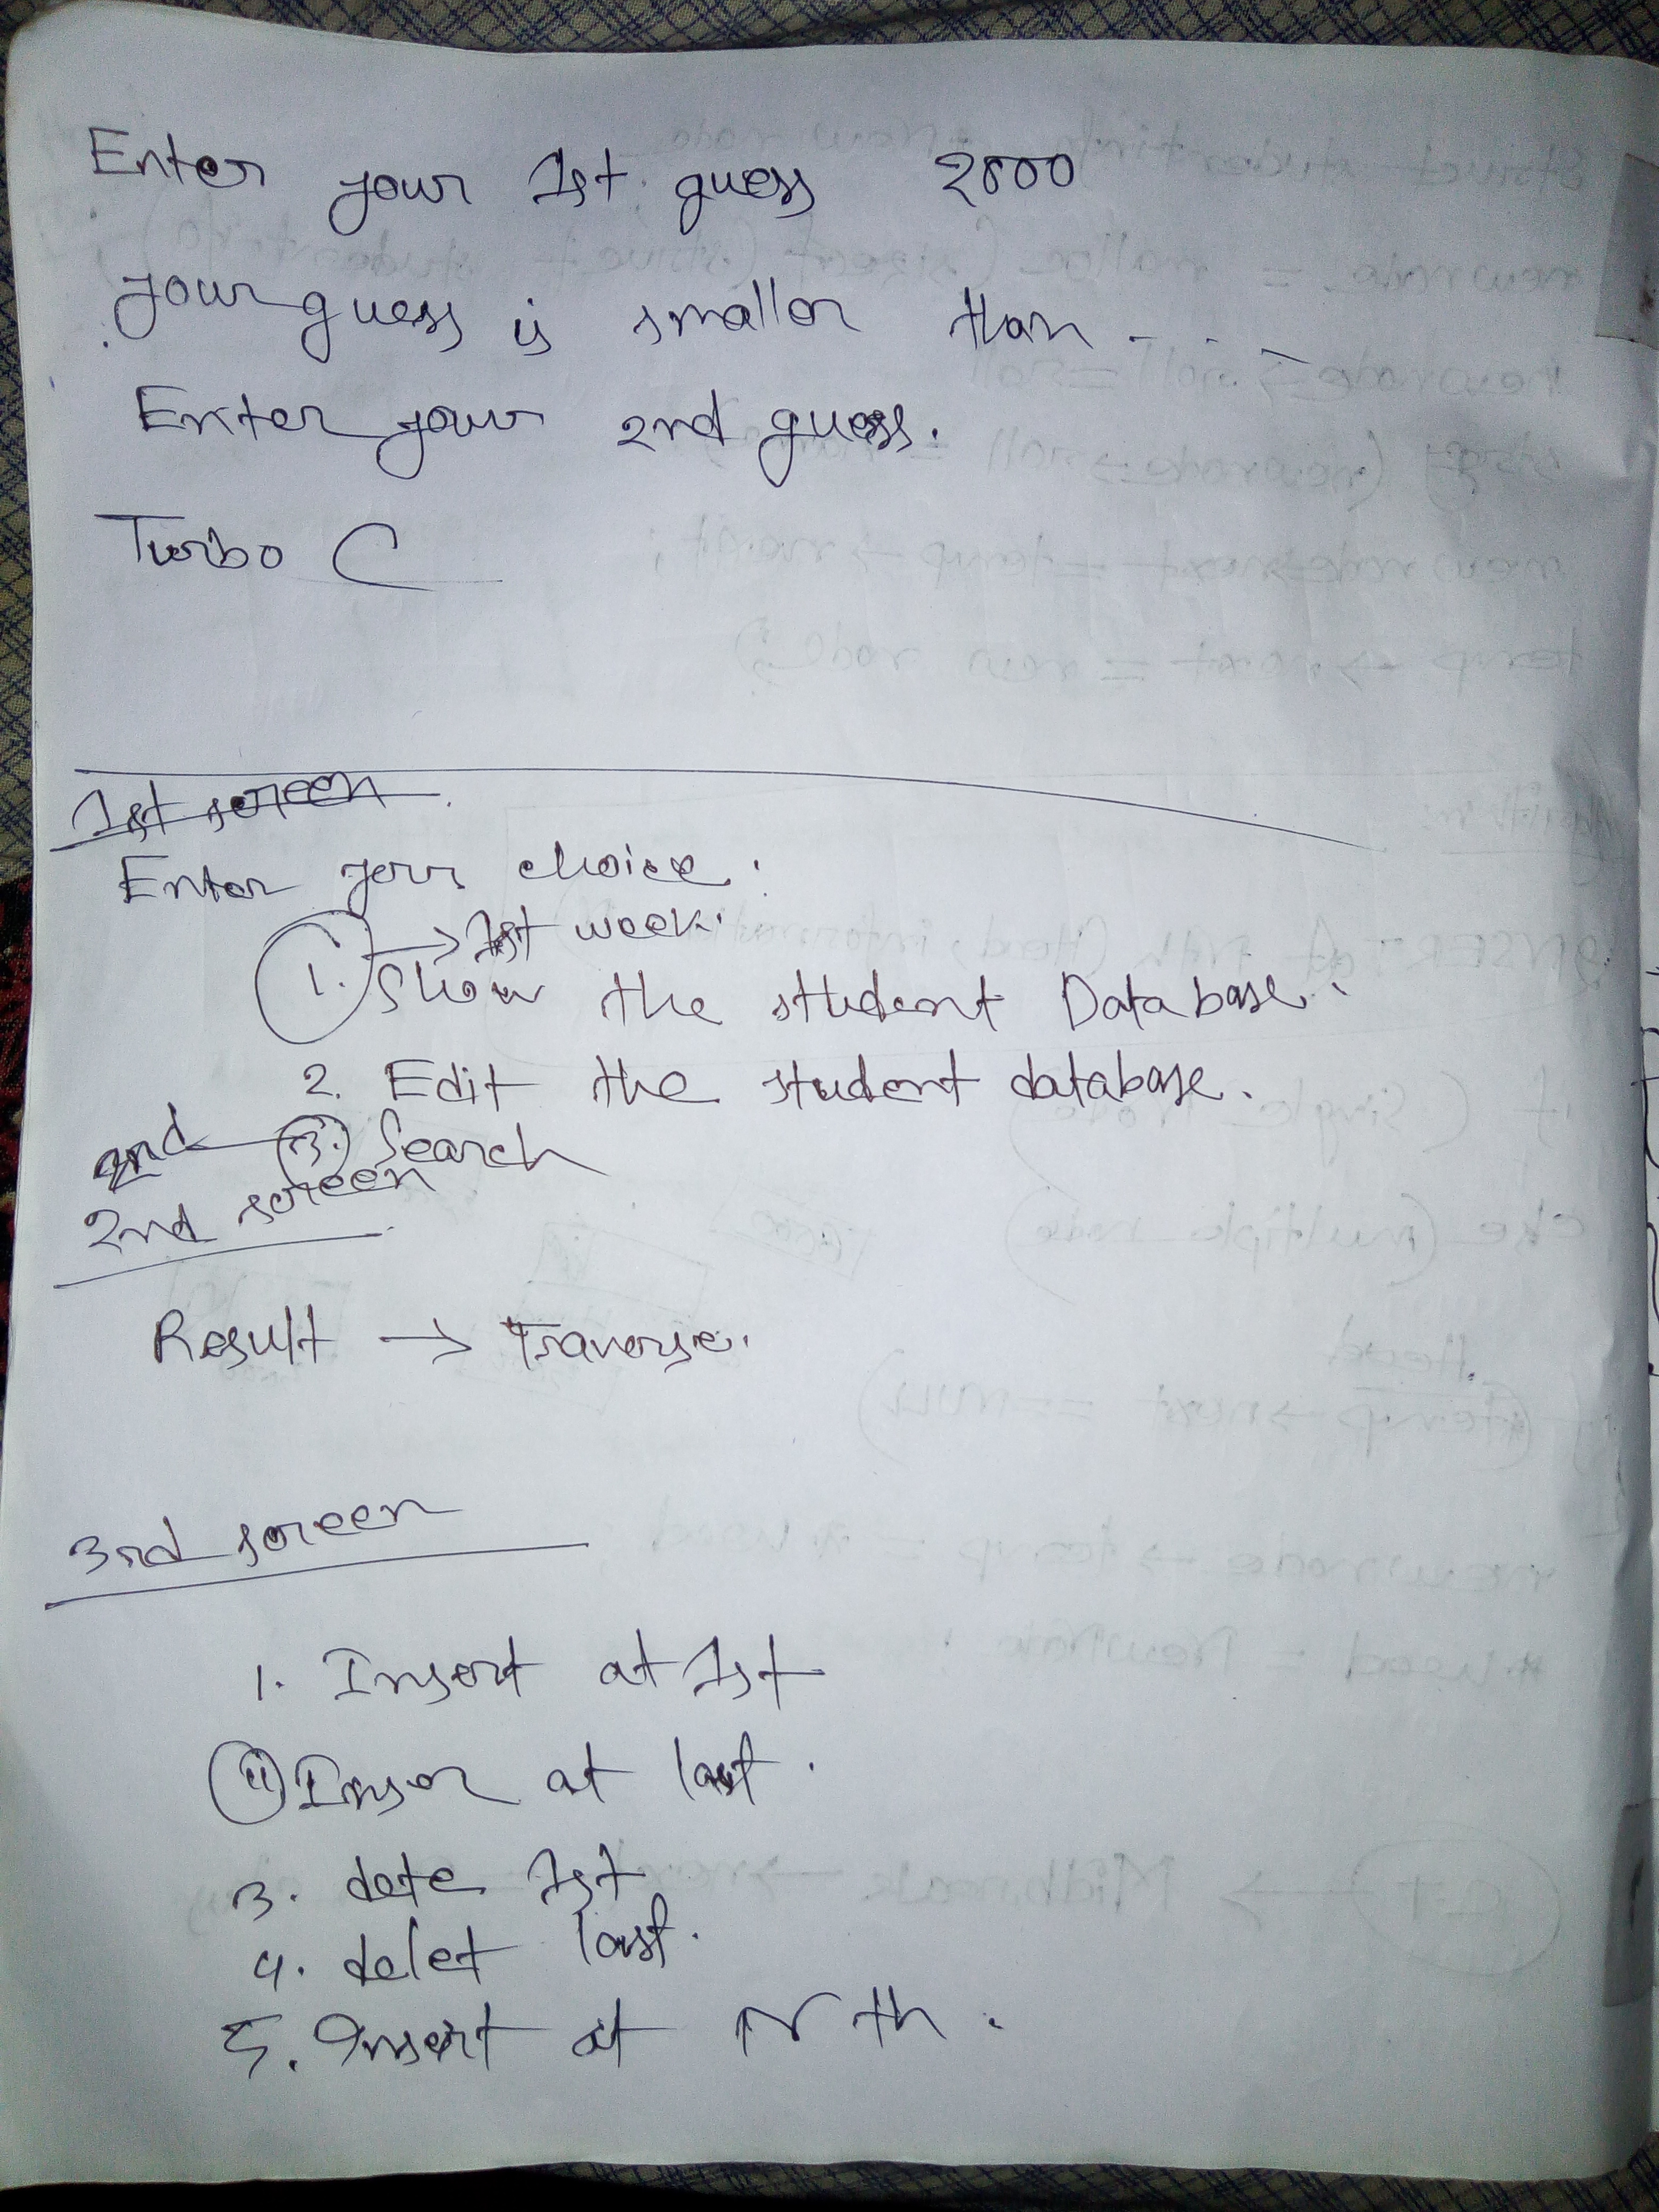 Enter your 1st guess 2500
your guess is smaller than - - - -
Enter your 2nd guess.
Turbo C
1st screen
Enter your choice:
→ 1st week.
1. Show the student Database.
2. Edit the student database.
2nd 3. Search
2nd screen
Result → Traverse.
3rd screen
1. Insert at 1st
ii Inser at last.
3. dete 1st
4. delet last.
5. Insert at Nth.